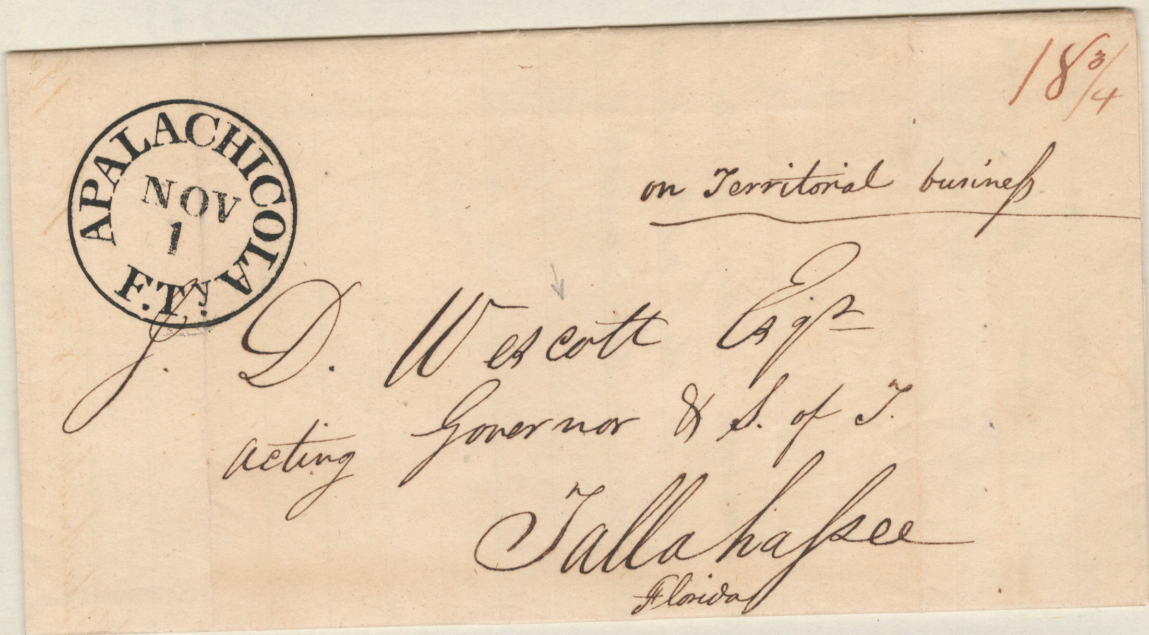 APALACHICOLA
NOV
1
F.T.y.
18 3/4
on Territorial busineſs
J. D. Wescott Esqr
acting Governor & S. of T.
Tallahaſsee
Florida